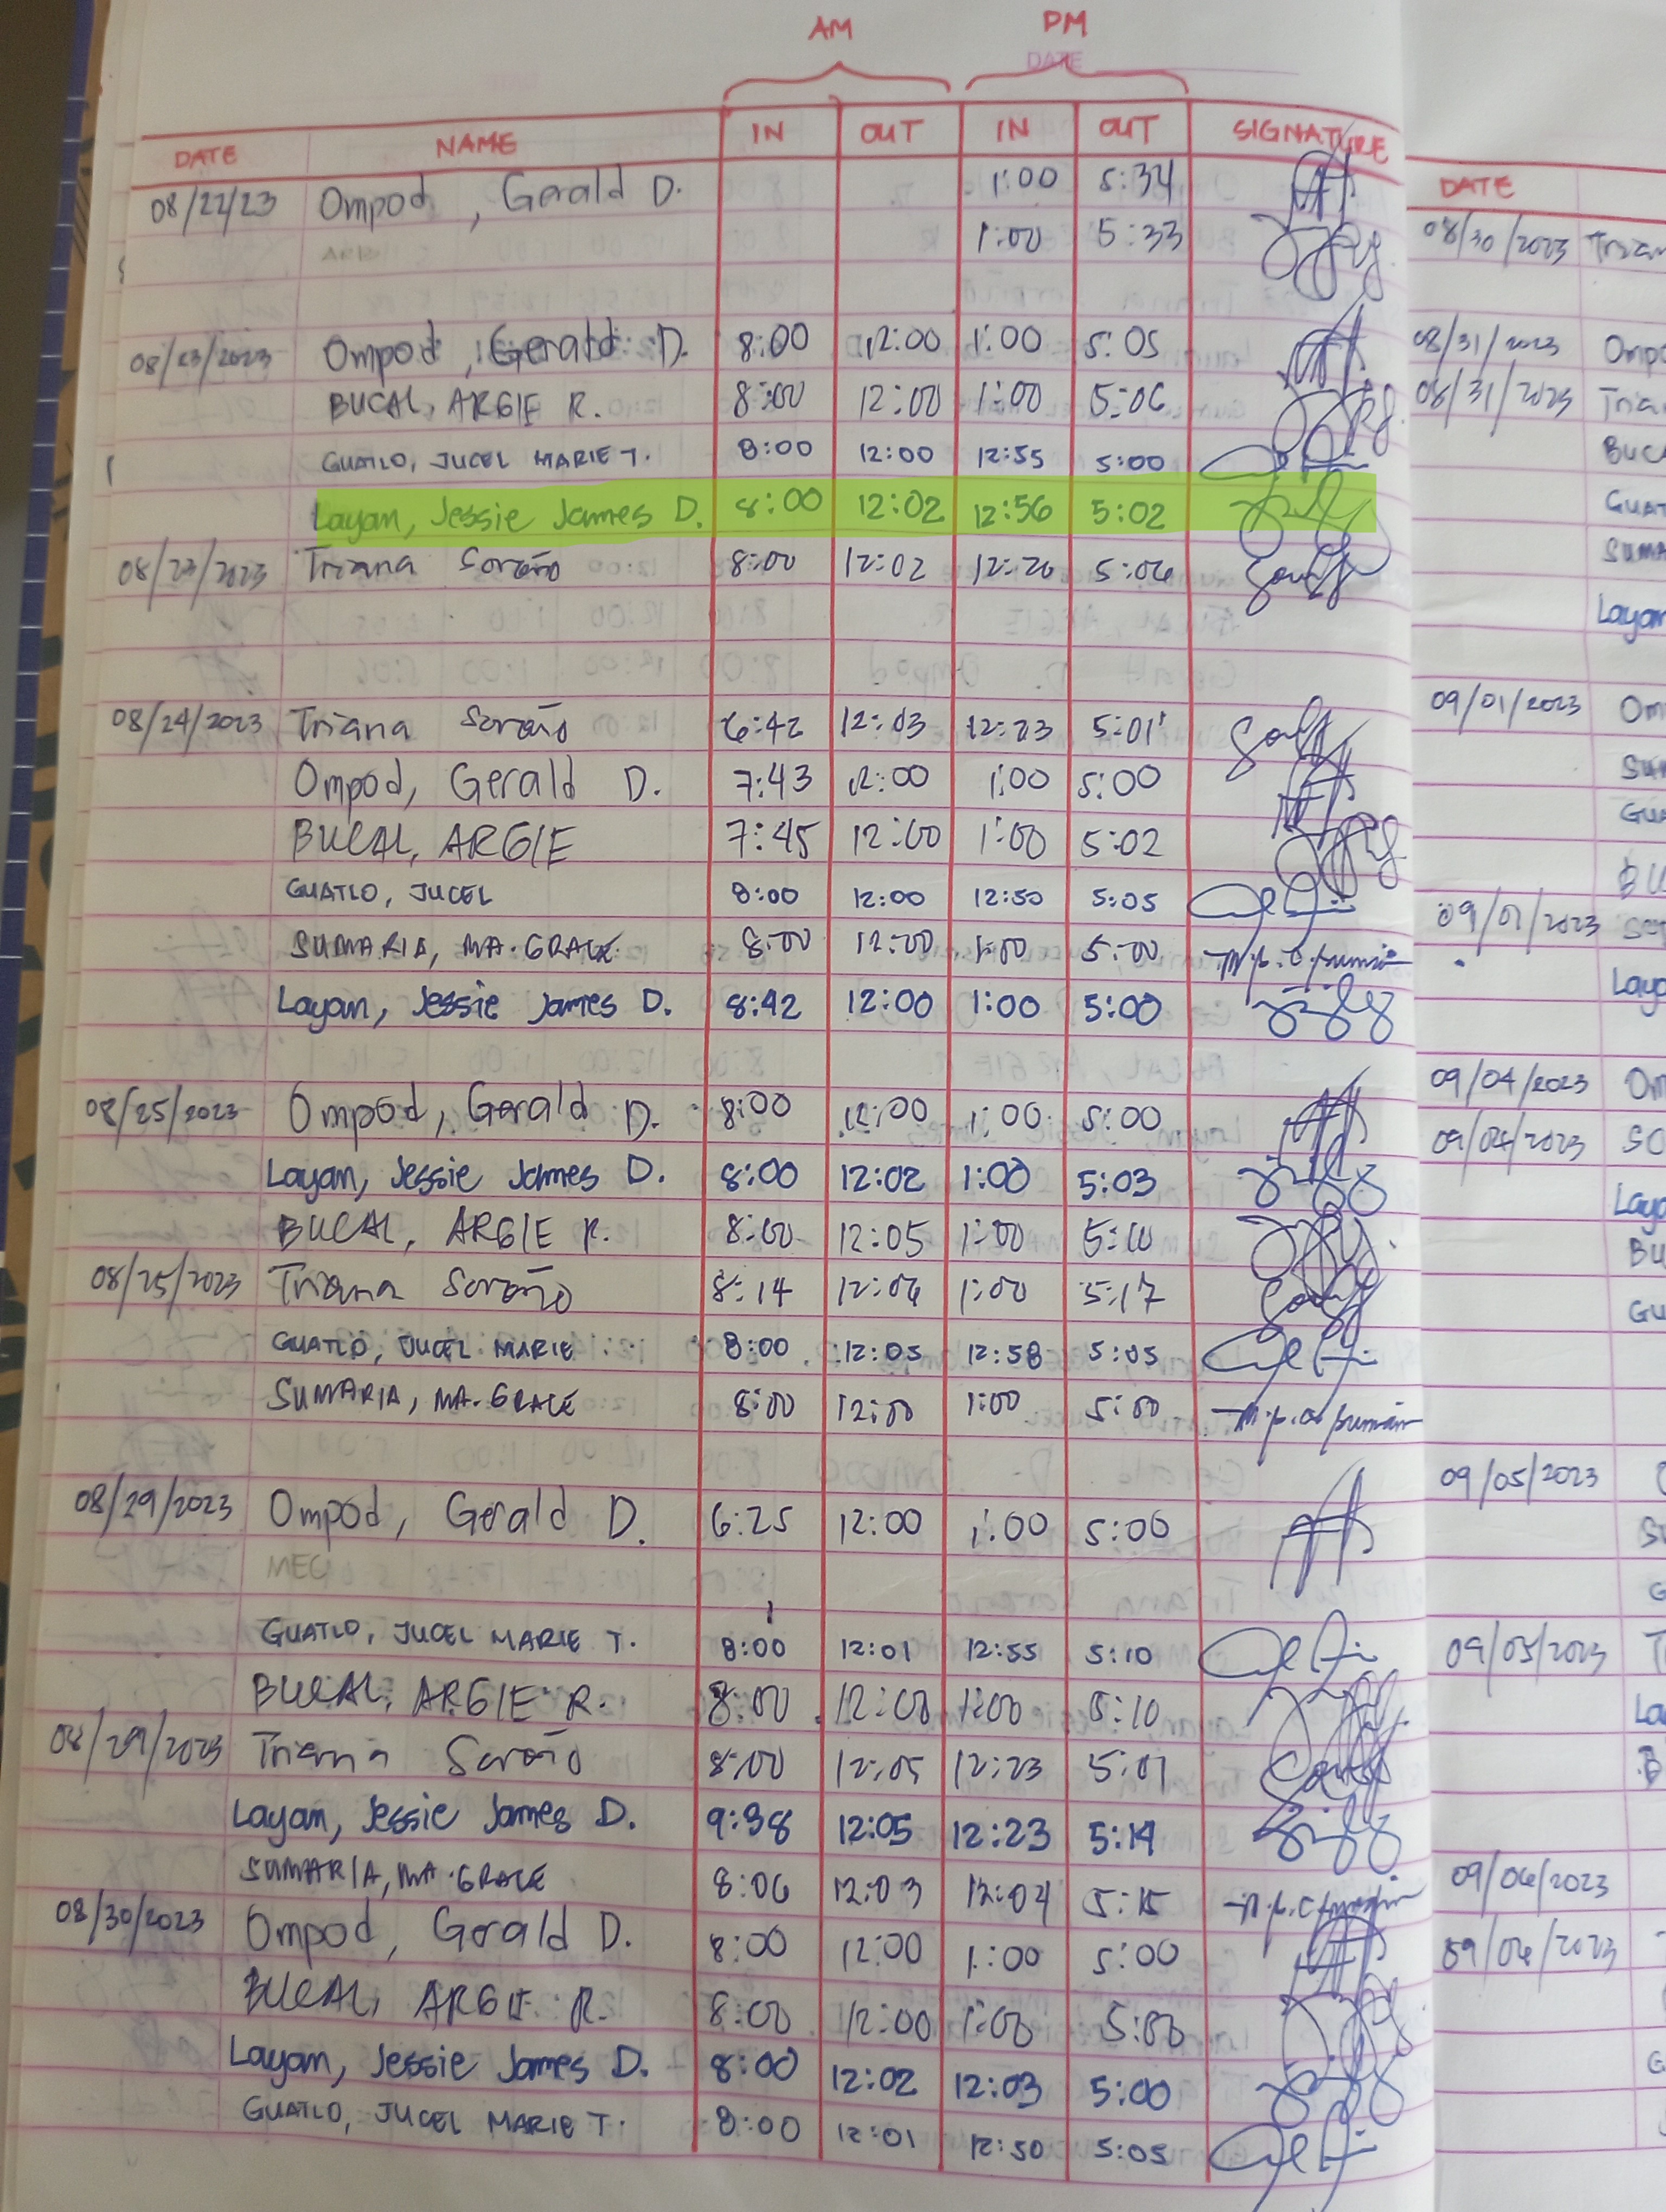 AM PM
DATE
DATE NAME IN OUT IN OUT SIGNATURE
08/22/23 Ompod, Gerald D. 1:00 5:34
1:00 5:33
08/23/2023 Ompod, Gerald D. 8:00 12:00 1:00 5:05
BUCAL, ARGIE R. 8:00 12:00 1:00 5:06
GUATLO, JUCEL MARIE T. 8:00 12:00 12:55 5:00
Layan, Jessie James D. 8:00 12:02 12:56 5:02
08/23/2023 Triana Soreño 8:00 12:02 12:20 5:06
08/24/2023 Triana Soreño 6:42 12:03 12:23 5:01
Ompod, Gerald D. 7:43 12:00 1:00 5:00
BUCAL, ARGIE 7:45 12:00 1:00 5:02
GUATLO, JUCEL 8:00 12:00 12:50 5:05
SUMARIA, MA. GRACE 8:00 12:00 1:00 5:00
Layan, Jessie James D. 8:42 12:00 1:00 5:00
08/25/2023 Ompod, Gerald D. 8:00 12:00 1:00 5:00
Layan, Jessie James D. 8:00 12:02 1:00 5:03
BUCAL, ARGIE R. 8:00 12:05 1:00 5:10
08/25/2023 Triana Soreño 8:14 12:06 1:00 5:17
GUATLO, JUCEL MARIE 8:00 12:05 12:58 5:05
SUMARIA, MA. GRACE 8:00 12:00 1:00 5:00
08/29/2023 Ompod, Gerald D. 6:25 12:00 1:00 5:00
MEC
GUATLO, JUCEL MARIE T. 8:00 12:01 12:55 5:10
BUCAL, ARGIE R. 8:00 12:00 1:00 5:10
08/29/2023 Triana Soreño 8:00 12:05 12:23 5:01
Layan, Jessie James D. 9:38 12:05 12:23 5:14
SUMARIA, MA. GRACE 8:06 12:03 12:04 5:15
08/30/2023 Ompod, Gerald D. 8:00 12:00 1:00 5:00
BUCAL, ARGIE R. 8:00 12:00 1:00 5:00
Layan, Jessie James D. 8:00 12:02 12:03 5:00
GUATLO, JUCEL MARIE T. 8:00 12:01 12:50 5:05
DATE
08/30/2023 Trian
08/31/2023 Ompo
08/31/2023 Tria
BUCA
GUAT
SUMA
Layan
09/01/2023 Om
SUM
GUA
BU
09/01/2023
Laya
09/04/2023 Om
09/04/2023 SO
Laya
BU
GU
09/05/2023
G
09/05/2023 T
La
B
09/06/2023
09/06/2023
G